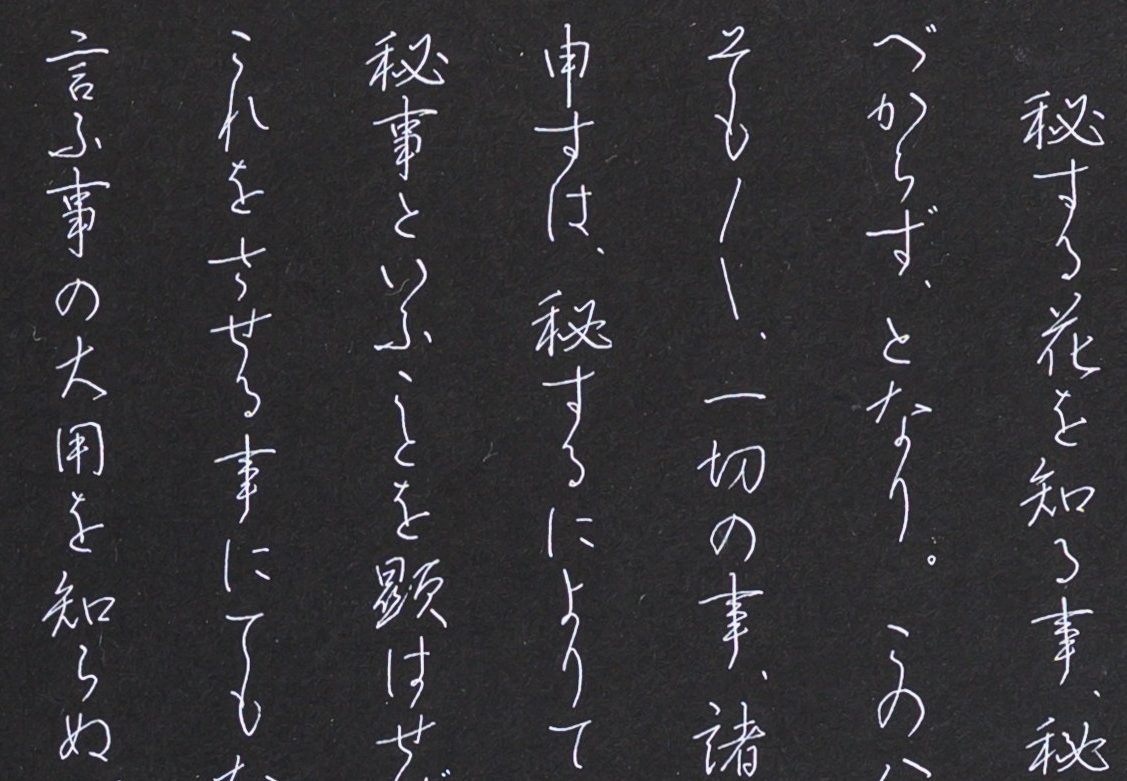 秘する花を知る事、秘
べからず、となり。この
そも〳〵、一切の事、諸
申すは、秘するによりて
秘事といふことを顕はせ
これをさせる事にても
言ふ事の大用を知らぬ